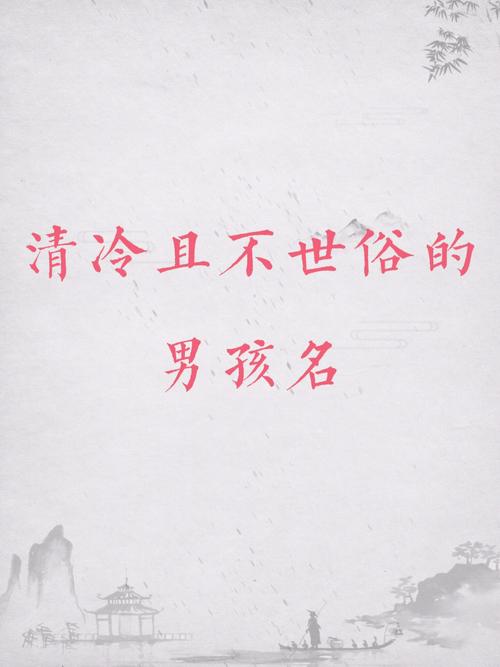 清冷且不世俗的
男孩名